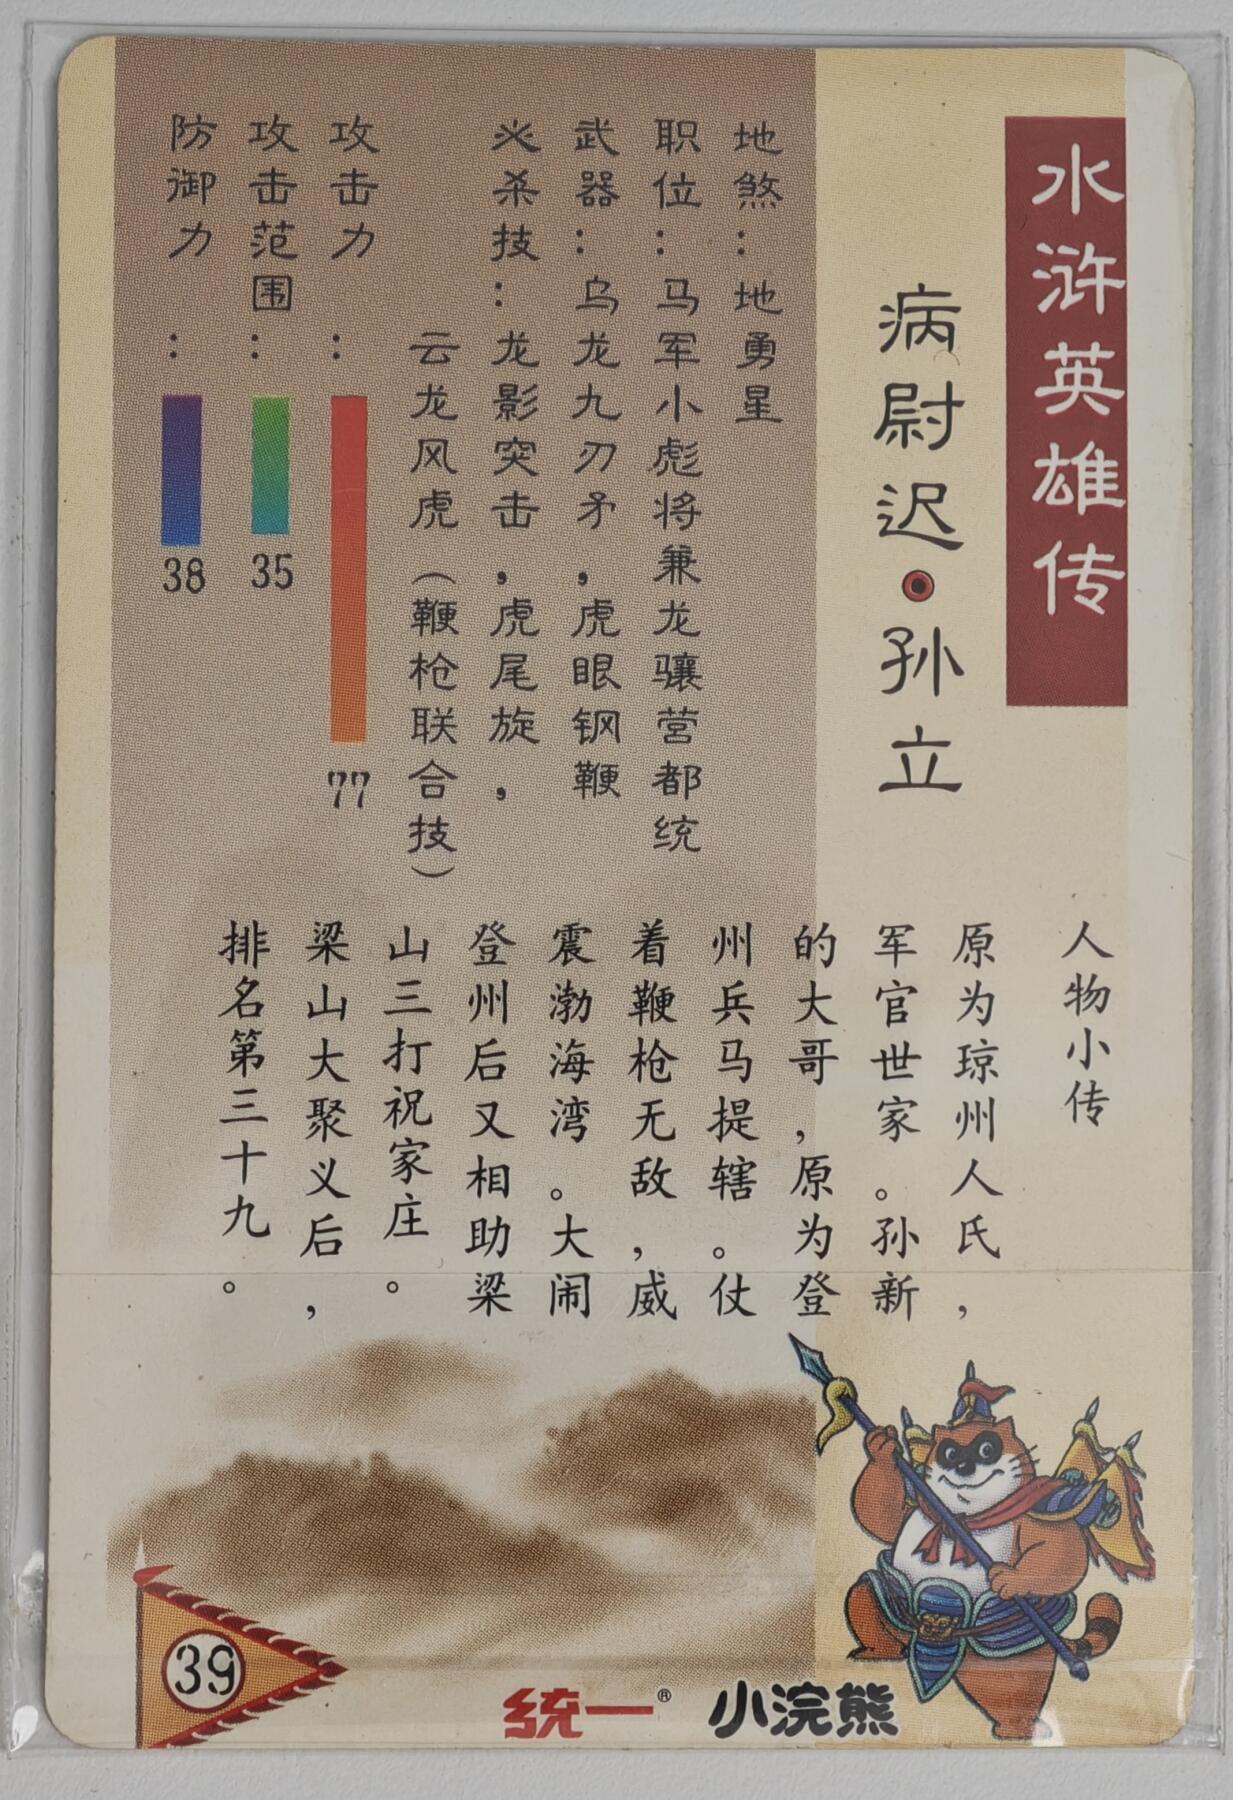 水浒英雄传
病尉迟·孙立
地煞：地勇星
职位：马军小彪将兼龙骧营都统
武器：乌龙九刃矛，虎眼钢鞭
必杀技：龙影突击，虎尾旋，
云龙风虎（鞭枪联合技）
攻击力：77
攻击范围：35
防御力：38
人物小传
原为琼州人氏，
军官世家。孙新
的大哥，原为登
州兵马提辖。仗
着鞭枪无敌，威
震渤海湾。大闹
登州后又相助梁
山三打祝家庄。
梁山大聚义后，
排名第三十九。
39
统一® 小浣熊